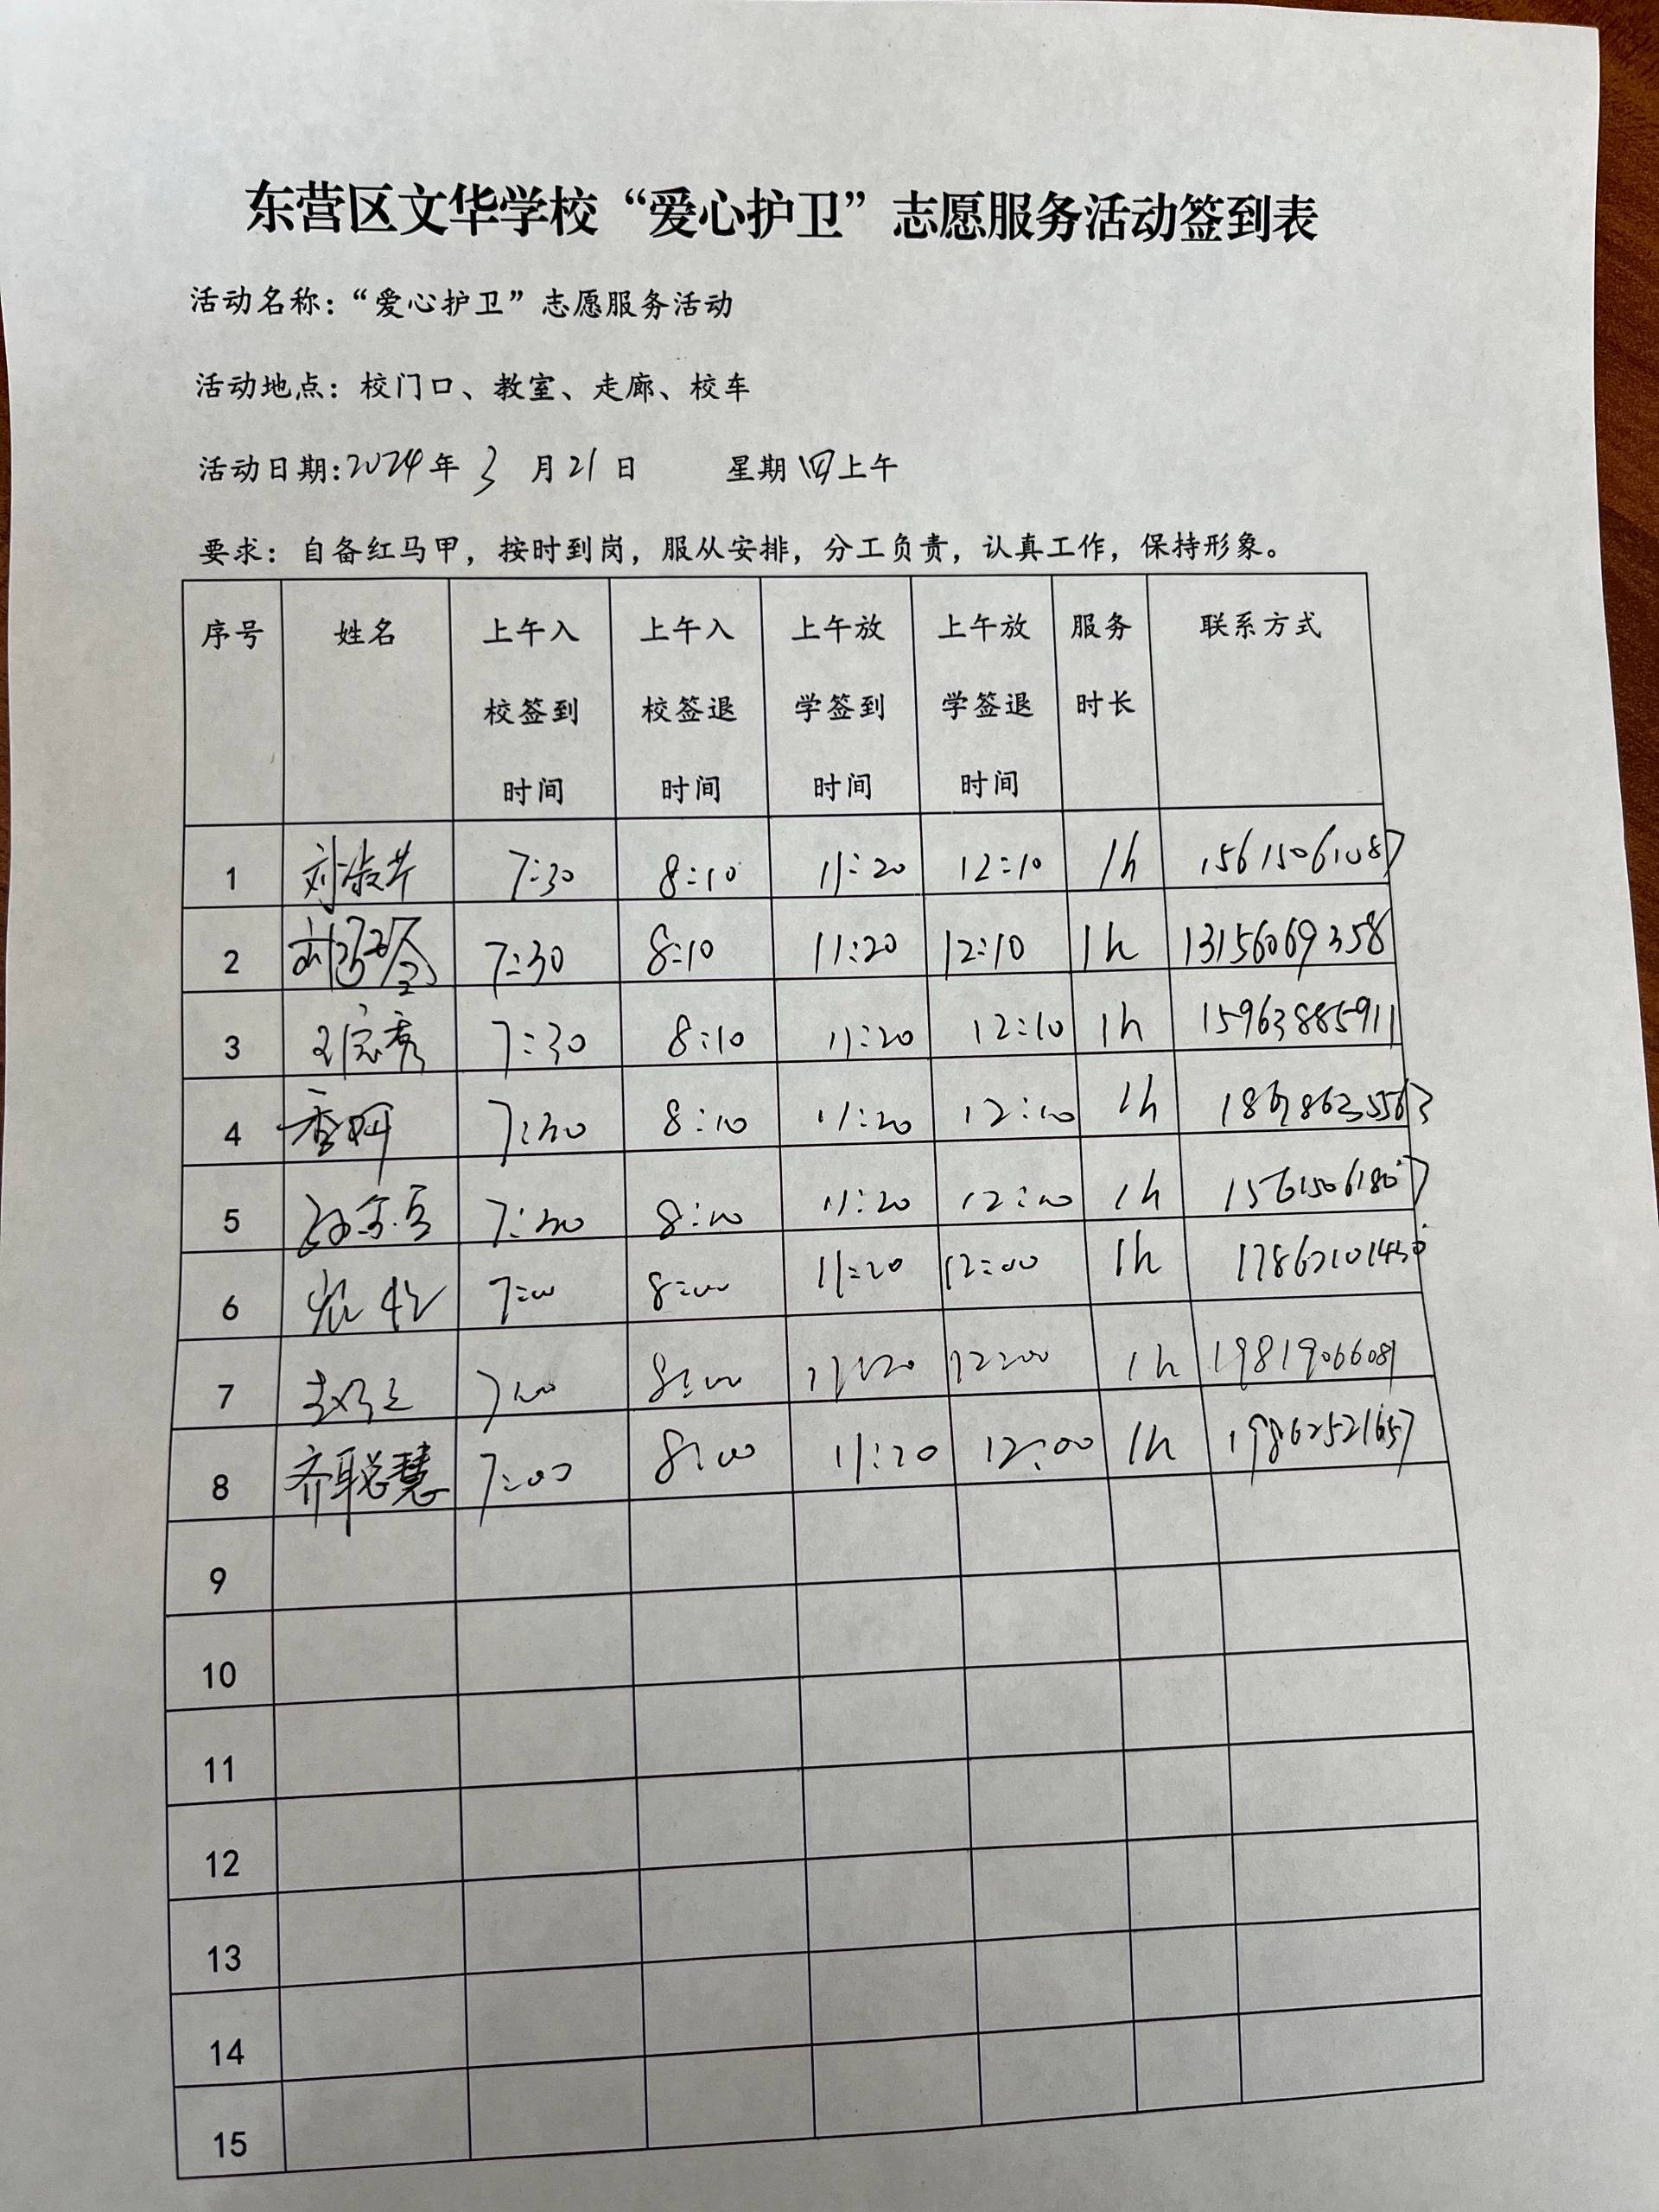 东营区文华学校“爱心护卫”志愿服务活动签到表
活动名称：“爱心护卫”志愿服务活动
活动地点：校门口、教室、走廊、校车
活动日期:2024年 3 月21日 星期四上午
要求：自备红马甲，按时到岗，服从安排，分工负责，认真工作，保持形象。
序号 姓名 上午入校签到时间 上午入校签退时间 上午放学签到时间 上午放学签退时间 服务时长 联系方式
1 刘淑芹 7:30 8:10 11:20 12:10 1h 15615061087
2 7:30 8:10 11:20 12:10 1h 13156069358
3 7:30 8:10 11:20 12:10 1h 15963885911
4 7:30 8:10 11:20 12:10 1h
5 7:30 8:10 11:20 12:10 1h 15615061807
6 7:00 8:00 11:20 12:00 1h
7 7:00 8:00 11:20 12:00 1h 19819066081
8 齐聪慧 7:00 8:00 11:20 12:00 1h 19862521657
9
10
11
12
13
14
15